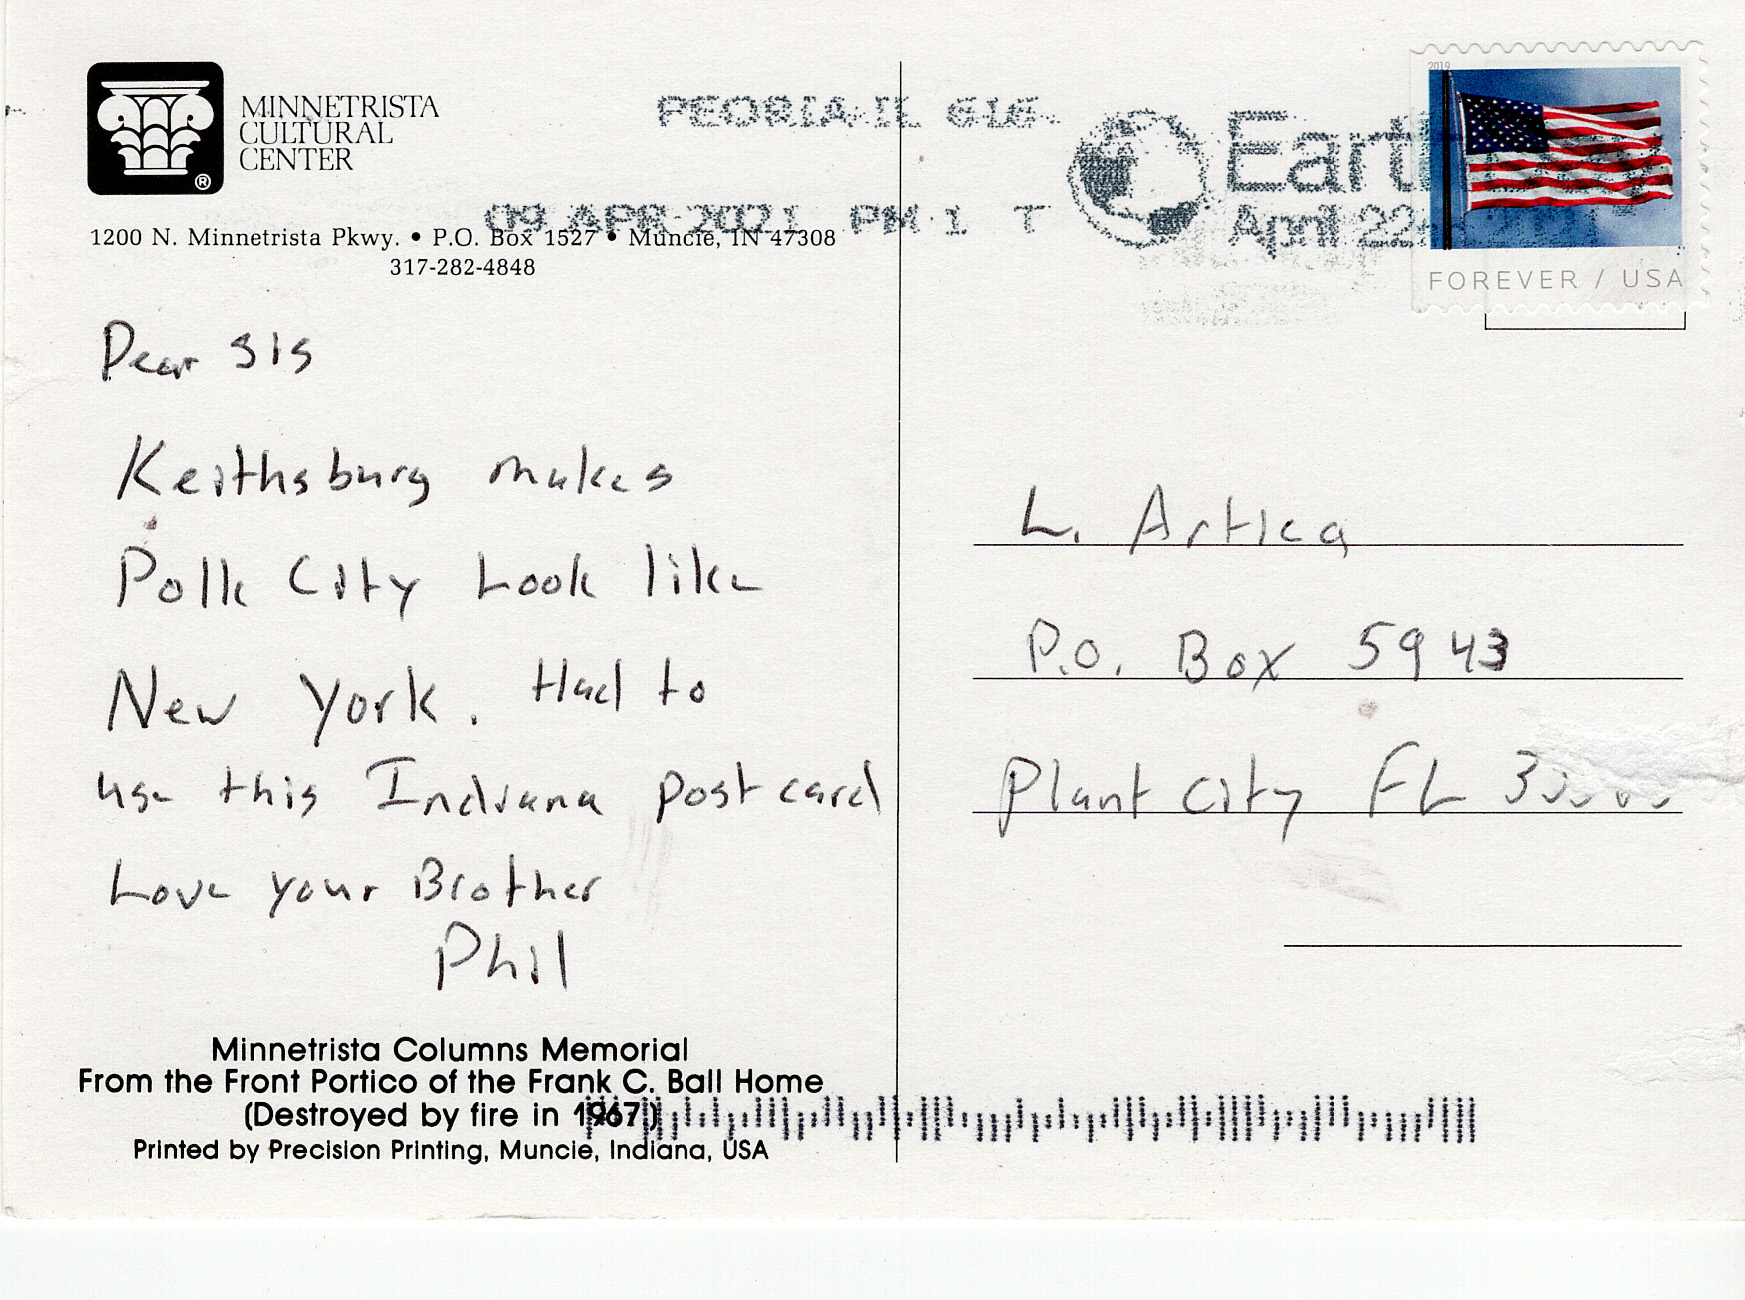 MINNETRISTA
CULTURAL
CENTER
®
1200 N. Minnetrista Pkwy. • P.O. Box 1527 • Muncie, IN 47308
317-282-4848
PEORIA IL 616
09 APR 2021 PM 1 T
Eart
April 22nd 2021
2019
FOREVER / USA
Dear SIS
Keithsburg makes
Polk City Look like
New York. Had to
use this Indiana post card
Love your Brother
Phil
L. Artica
P.O. Box 5943
Plant City FL
Minnetrista Columns Memorial
From the Front Portico of the Frank C. Ball Home
(Destroyed by fire in 1967)
Printed by Precision Printing, Muncie, Indiana, USA